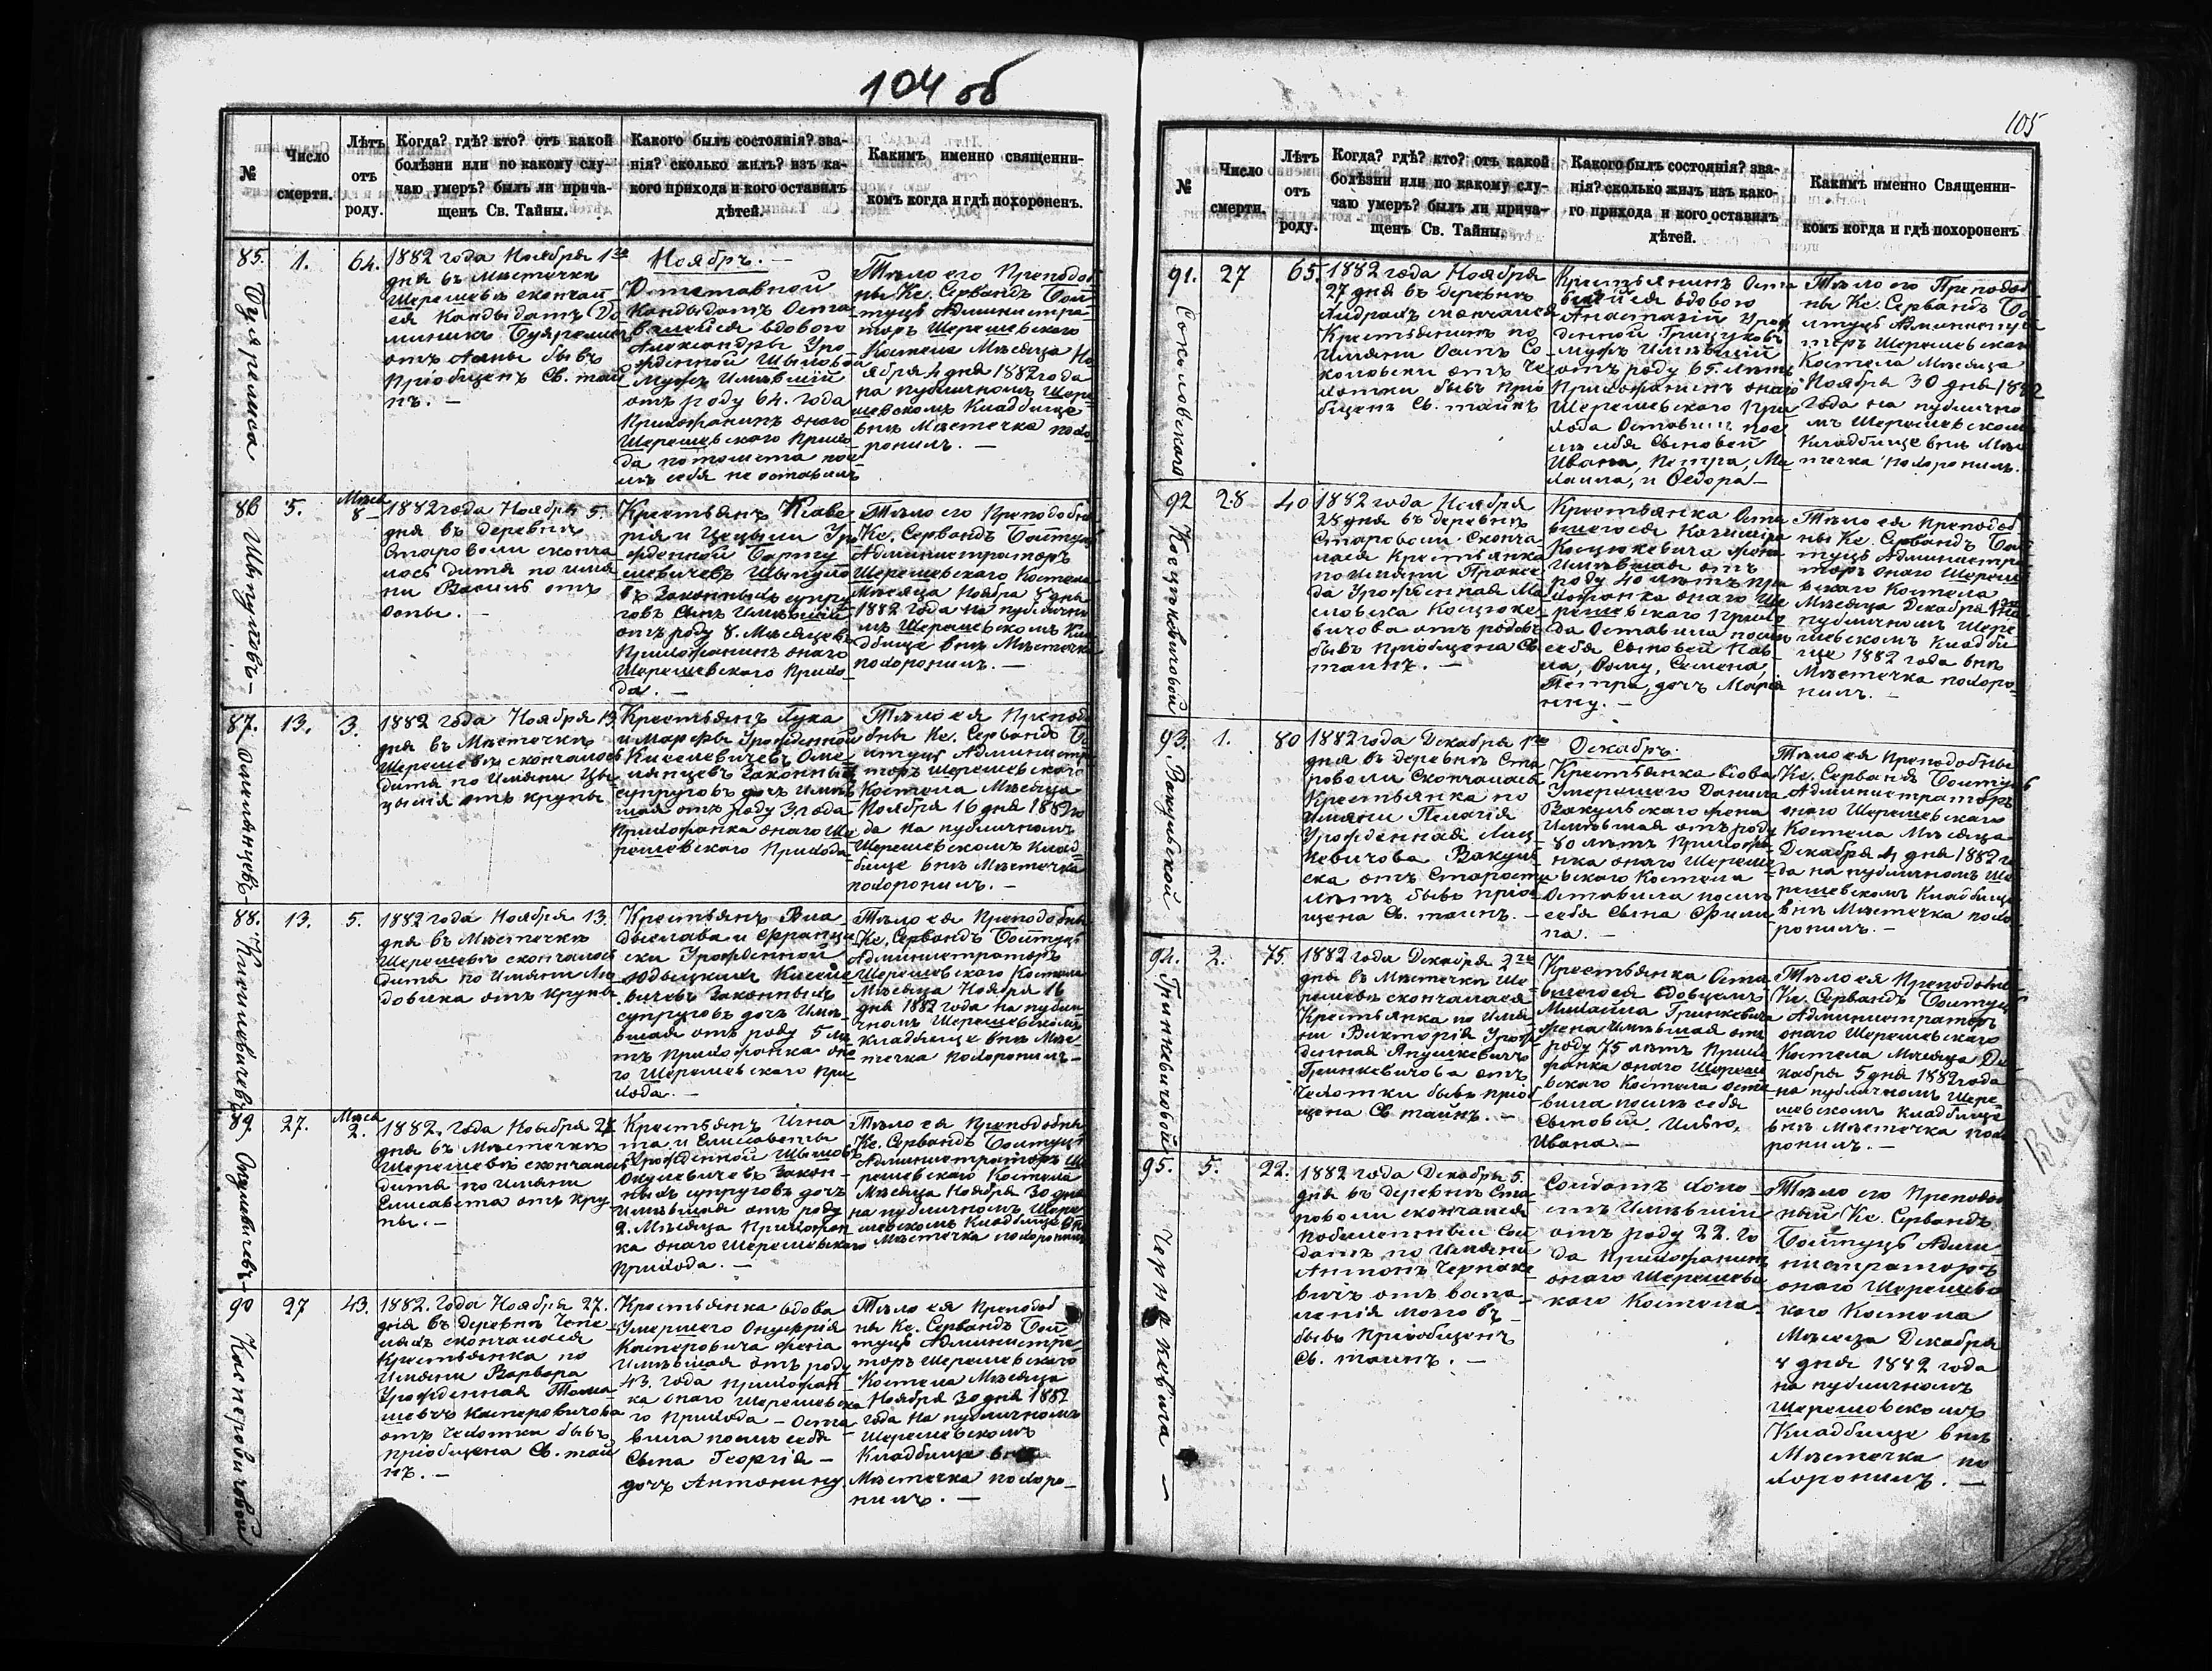 104 об
№
Число
смерти.
Лѣтъ
отъ
роду.
Когда? гдѣ? кто? отъ какой
болѣзни или по какому слу-
чаю умеръ? былъ ли прича-
щенъ Св. Тайны.
Какого былъ состоянія? зва-
нія? сколько жилъ? изъ ка-
кого прихода и кого оставилъ
дѣтей.
Какимъ именно священни-
комъ когда и гдѣ похороненъ.
85.
1.
64.
1882 года Ноября 1го
дня въ Мѣстечкѣ
Шерешевѣ скончал
ся Кандыдатъ До
миникъ
отъ бывъ
Пріобщенъ Св. тай
нъ. —
Ноябрь. —
Отставной
Кандыдатъ Оста
вшейся вдовою
Александры Уро
жденной
Мужъ Имѣвшій
отъ роду 64. года
Прихожанинъ онаго
Шерешевского Прихо
да потомства пос
лѣ себя не оставилъ
Тѣло его Преподоб
ны Кс. Сервандъ Бой
туцъ Администра
торъ Шерешевского
Костела Мѣсяца Но
ября 4 дня 1882 года
на публичномъ Шере
шевскомъ Кладбище
внѣ Мѣстечка похо
ронилъ. —
86
5.
Мѣся
8
1882 года Ноября 5.
дня въ деревни
Староволи сконча
лось дитя по имя
ни Василь отъ
оспы. —
Крестьянъ Ксаве
рія и Цецыліи Уро
жденной Барту
шевичевъ Шыпуло
въ Законныхъ супру
говъ сынъ Имѣвшій
отъ роду 8. Мѣсяцевъ
Прихожанинъ онаго
Шерешевского Прихо
да. —
Тѣло его Преподобны
Кс. Сервандъ Бойтуцъ
Администраторъ
Шерешевского Костела
Мѣсяца Ноября 8 дня
1882 года на публично
мъ Шерешевскомъ Кла
дбище внѣ Мѣстечка
похоронилъ. —
Шыпуловъ —
87.
13.
3.
1882 года Ноября 13
дня въ Мѣстечкѣ
Шерешевѣ скончалось
дитя по Имяни Цы
цылія отъ крупы
Крестьянъ Лука
и Марфы Урожденной
Киселевичевъ Оме
лянцевъ Законныхъ
супруговъ дочъ Имѣв
шая отъ роду 3. года
Прихожанка онаго Ше
решевского Прихода
Тѣло ея Преподо
бны Кс. Сервандъ Бо
йтуцъ Администра
торъ Шерешевского
Костела Мѣсяца
Ноября 16 дня 1882 го
да на публичномъ
Шерешевскомъ Клад
бище внѣ Мѣстечка
похоронилъ. —
Омелянцевъ —
88.
13.
5.
1882 года Ноября 13.
дня въ Мѣстечкѣ
Шерешевѣ скончалось
дитя по Имяни Лю
довика отъ Крупы
Крестьянъ Вла
дыслава и Францы
ски Урожденной
Киселе
вичевъ Законныхъ
супруговъ дочъ Имѣ
вшая отъ роду 5 лѣ
тъ Прихожанка она
го Шерешевского При
хода. —
Тѣло ея Преподобны
Кс. Сервандъ Бойтуцъ
Администраторъ
Шерешевского Костела
Мѣсяца Ноября 16
дня 1882 года на публи
чномъ Шерешевскомъ
Кладбище внѣ Мѣс
течка похоронилъ —
89
27.
Мѣся
2.
1882. года Ноября 27
дня въ Мѣстечкѣ
Шерешевѣ скончалось
дитя по Имяни
Елисавета отъ кру
пы. —
Крестьянъ Игна
та и Елисаветы
Урожденной
Закон
ныхъ супруговъ дочъ
Имѣвшая отъ роду
2. Мѣсяца Прихожан
ка онаго Шерешевского
Прихода. —
Тѣло ея Преподобны
Кс. Сервандъ Бойтуцъ
Администраторъ Ше
решевского Костела
Мѣсяца Ноября 30 дня
на публичномъ Шере
шевскомъ Кладбище внѣ
Мѣстечка похоронилъ
90
27
43.
1882. года Ноября 27.
дня въ деревни Чепе
ляхъ скончалася
Крестьянка по
Имяни Варвара
Урожденная Тома
шевичъ Касперовичова
отъ Чахотки бывъ
пріобщена Св. тай
нъ. —
Крестьянка вдова
Умершего Онуфрія
Касперовича жена
Имѣвшая отъ роду
43. года прихожан
ка онаго Шерешевско
го Прихода — Оста
вила послѣ себя
Сына Георгія —
дочъ Антонину.
Тѣло ея Преподоб
ны Кс. Сервандъ Бой
туцъ Администра
торъ Шерешевского
Костела Мѣсяца
Ноября 30 дня 1882
года на публичномъ
Шерешевскомъ
Кладбище внѣ
Мѣстечка похоро
нилъ. —
Касперовичовой
105
№
Число
смерти.
Лѣтъ
отъ
роду.
Когда? гдѣ? кто? отъ какой
болѣзни или по какому слу-
чаю умеръ? былъ ли прича-
щенъ Св. Тайны.
Какого былъ состоянія? зва-
нія? сколько жилъ изъ како-
го прихода и кого оставилъ
дѣтей.
Какимъ именно Священни-
комъ когда и гдѣ похороненъ
91.
27
65
1882 года Ноября
27 дня въ деревни
скончался
Крестьянинъ по
Имяни Осипъ Со
коловски отъ Ча
хотки бывъ прио
бщенъ Св. тайнъ
Крестьянинъ Оста
вшейся вдовою
Анастазіи Урож
денной Грицуковъ
мужъ Имѣвшій
отъ роду 65. лѣтъ
Прихожанинъ онаго
Шерешевского При
хода Оставилъ пос
лѣ себя сыновей
Ивана, Петра, Ми
хаила, и Федора —
Тѣло его Преподоб
ны Кс. Сервандъ Бо
йтуцъ Администра
торъ Шерешевского
Костела Мѣсяца
Ноября 30 дня 1882
года на публично
мъ Шерешевскомъ
Кладбище внѣ Мѣс
течка похоронилъ.
Соколовского
92
28
40
1882 года Ноября
28 дня въ деревни
Староволи Сконча
лася Крестьянка
по Имяни Праксе
да Урожденная Ма
словска Косцюке
вичова отъ родовъ
бывъ пріобщена Св.
таинъ. —
Крестьянка Оста
вшегося Казимира
Косцюкевича жена
Имѣвшая отъ
роду 40 лѣтъ при
хожанка онаго Ше
решевского Прихо
да Оставила послѣ
себя Сыновей Пав
ла, Рому, Семена,
Петра, дочъ Марiя
нну. —
Тѣло ея Преподоб
ны Кс. Сервандъ Бой
туцъ Администра
торъ онаго Шереше
вского Костела
Мѣсяца Декабря 1го на
публичномъ Шере
шевскомъ Кладби
ще 1882 года внѣ
Мѣстечка похоро
нилъ. —
Косцюкевичовой
93.
1.
80
1882 года Декабря 1го
дня въ деревни Ста
роволи Скончалась
Крестьянка по
Имяни Пелагія
Урожденная Лиц
кевичова Вакуль
ска отъ Старости
лѣтъ бывъ пріоб
щена Св. таинъ. —
Декабрь.
Крестьянка вдова
Умершего Данила
Вакульского жена
Имѣвшая отъ роду
80 лѣтъ Прихожа
нка онаго Шереше
вского Костела
Оставила послѣ
себя Сына Фили
па. —
Тѣло ея Преподобны
Кс. Сервандъ Бойтуцъ
Администраторъ
онаго Шерешевского
Костела Мѣсяца
Декабря 4 дня 1882 го
да на публичномъ Ше
решевскомъ Кладбище
внѣ Мѣстечка похо
ронилъ. —
Вакульской
94.
2.
75
1882 года Декабря 2го
дня въ Мѣстечки Ше
решевѣ скончалася
Крестьянка по Имя
ни Викторія Урож
денная Янушкевичъ
Гринкевичова отъ
Чахотки бывъ пріоб
щена Св. тайнъ. —
Крестьянка Оста
вшегося вдовцемъ
Михаила Гринкевича
жена Имѣвшая отъ
роду 75 лѣтъ Прихо
жанка онаго Шереше
вского Костела оста
вила послѣ себя
Сыновей, Илью,
Ивана. —
Тѣло ея Преподобны
Кс. Сервандъ Бойтуцъ
Администраторъ
онаго Шерешевского
Костела Мѣсяца Де
кабря 5 дня 1882 года
на публичномъ Шере
шевскомъ кладбище
внѣ Мѣстечка похо
ронилъ. —
Гринкевичовой
95.
5.
22.
1882 года Декабря 5.
дня въ деревни Ста
роволи скончался
Сол
датъ по Имяни
Антонъ Черняке
вичъ отъ воспа
ленія мозговъ
бывъ Пріобщенъ
Св. таинъ. —
Солдатъ холо
стъ Имѣвшій
отъ роду 22. го
да прихожанинъ
онаго Шерешевс
кого Костела.
Тѣло его Преподоб
ный Кс. Сервандъ
Бойтуцъ Адми
нистраторъ
онаго Шерешевс
кого Костела
Мѣсяца Декабря
8 дня 1882 года
на публичномъ
Шерешевскомъ
Кладбище внѣ
Мѣстечка по
хоронилъ. —
Чернякевича —